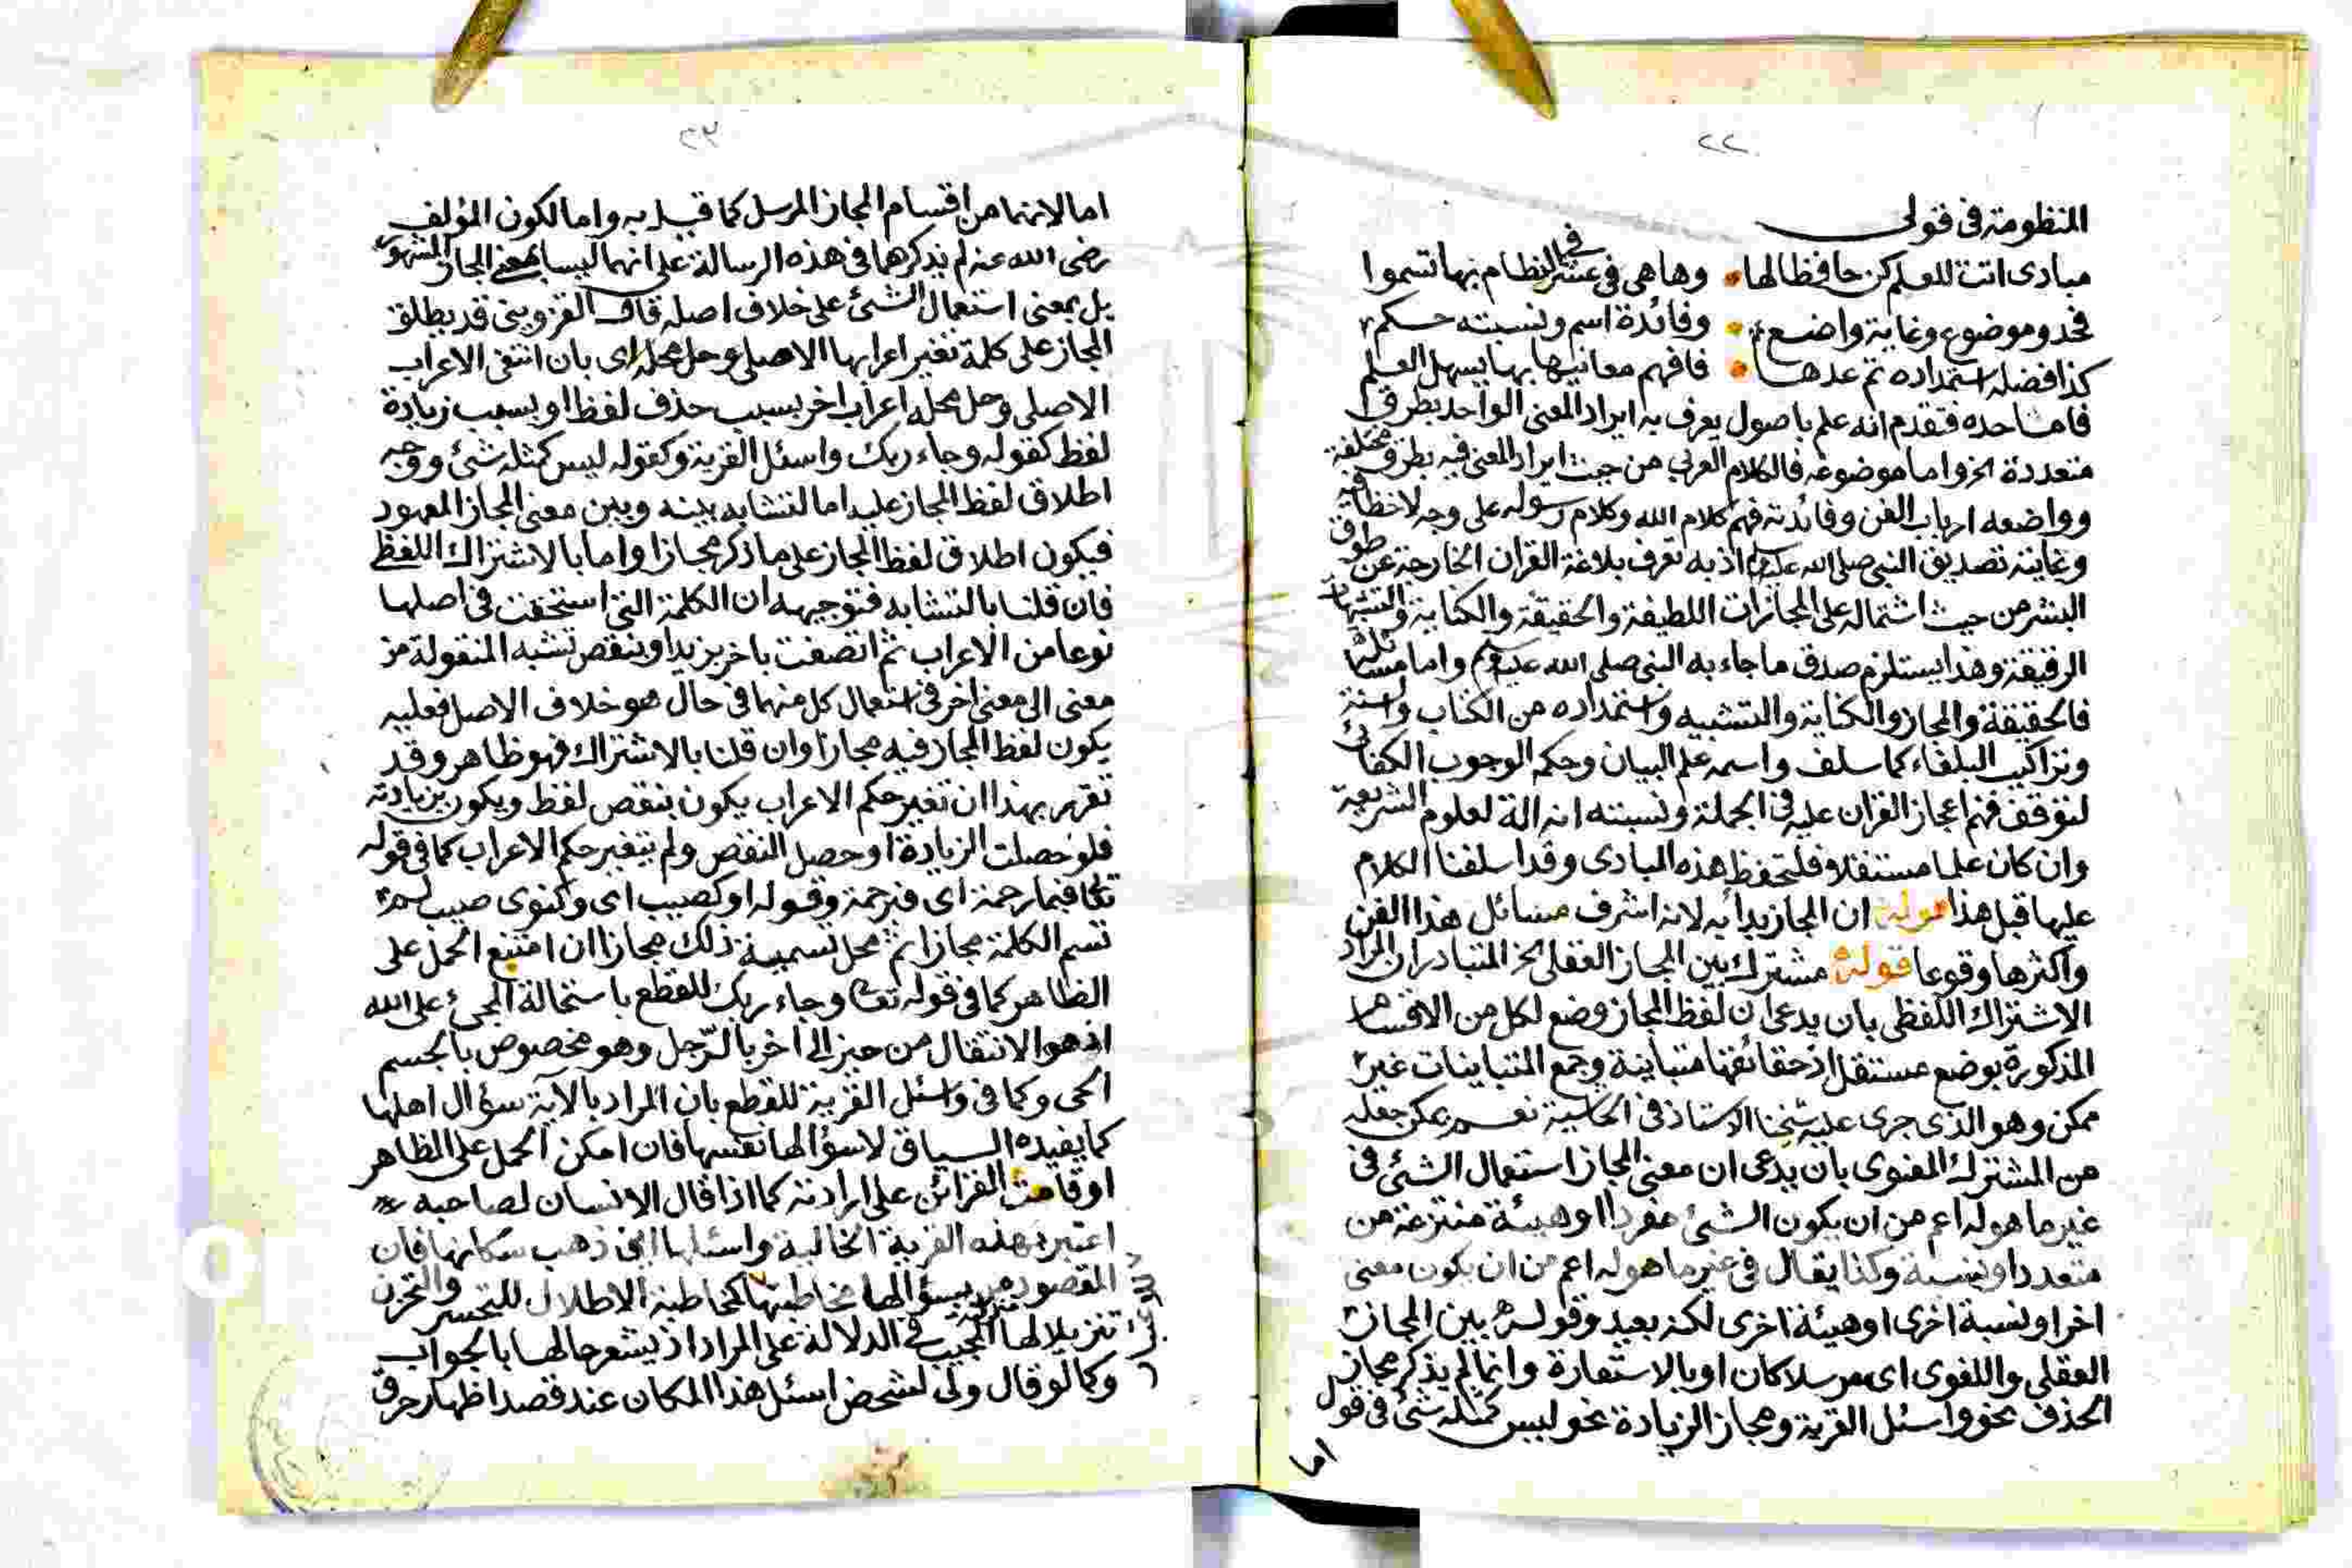 ٢٢
المنظومة فى قولى
مبادى اتت للعلم كن حافظا لها وها هى فى عشر النظام بها تسموا
فحد وموضوع وغاية واضع وفائدة اسم ونسبته حكم
كذا فضله استمداده تم عدها فافهم معانيها بها يسهل العلم
فاما حده فتقدم انه علم باصول يعرف به ايراد المعنى الواحد بطرق
متعددة الخ واما موضوعه فالكلام العربى من حيث ايراد المعنى فيه بطرق مختلفة
وواضعه ارباب الفن وفائدته فهم كلام الله وكلام رسوله على وجه لا خطا فيه
وغايته تصديق النبى صلى الله عليه وسلم اذ به تعرف بلاغة القران الخارجة عن طوق
البشر من حيث اشتماله على المجازات اللطيفة والحقيقة والكناية والتشبيهات
الرقيقة وهذا يستلزم صدق ما جاء به النبى صلى الله عليه وسلم واما مسائله
فالحقيقة والمجاز والكناية والتشبيه واستمداده من الكتاب والسنة
وتراكيب البلغاء كما سلف واسمه علم البيان وحكمه الوجوب الكفائى
لتوقف فهم اعجاز القران عليه فى الجملة ونسبته انه الة لعلوم الشريعة
وان كان علما مستقلا فلتحفظ هذه المبادى وقد اسلفنا الكلام
عليها قبل هذا قوله ان المجاز بدأ به لانه اشرف مسائل هذا الفن
واكثرها وقوعا قوله مشترك بين المجاز العقلى الخ المتبادر ان المراد
الاشتراك اللفظى بان يدعى ان لفظ المجاز وضع لكل من الاقسام
المذكورة بوضع مستقل اذ حقائقها متباينة وجمع المتباينات غير
ممكن وهو الذى جرى عليه شيخنا الاستاذ فى الحاشية نعم يمكن جعله
من المشترك المعنوى بان يدعى ان معنى المجاز استعمال الشئ فى
غير ما هو له اعم من ان يكون الشئ مفردا او هيئة منتزعة من
متعدد او نسبة وكذا يقال فى غير ما هو له اعم من ان يكون معنى
اخر او نسبة اخرى او هيئة اخرى لكنه بعيد وقوله بين المجاز
العقلى واللغوى اى مرسلا كان او بالاستعارة وانما لم يذكر مجاز
الحذف نحو واسئل القرية ومجاز الزيادة نحو ليس كمثله شئ فى قول
اما
٢٣
اما لانهما من اقسام المجاز المرسل كما قيل به واما لكون المؤلف
رضى الله عنه لم يذكرهما فى هذه الرسالة على انهما ليسا بمعنى المجاز المشهور
بل بمعنى استعمال الشئ على خلاف اصله قال القزوينى قد يطلق
المجاز على كلمة تغير اعرابها الاصلى وحل محله اى بان انتفى الاعراب
الاصلى وحل محله اعراب اخر بسبب حذف لفظ او بسبب زيادة
لفظ كقوله وجاء ربك واسئل القرية وكقوله ليس كمثله شئ ووجه
اطلاق لفظ المجاز عليه اما لتشابه بينه وبين معنى المجاز المعهود
فيكون اطلاق لفظ المجاز على ما ذكر مجازا واما بالاشتراك اللفظى
فان قلنا بالتشابه فتوجيهه ان الكلمة التى استحقت فى اصلها
نوعا من الاعراب ثم اتصفت باخر يزيد او ينقص تشبه المنقولة من
معنى الى معنى اخر فى استعمال كل منهما فى حال هو خلاف الاصل فعليه
يكون لفظ المجاز فيه مجازا وان قلنا بالاشتراك فهو ظاهر وقد
تقرر بهذا ان تغير حكم الاعراب يكون بنقص لفظ ويكون بزيادته
فلو حصلت الزيادة او حصل النقص ولم يتغير حكم الاعراب كما فى قوله
تعالى فبما رحمة اى فبرحمة وقوله او كصيب اى وكذوى صيب لم
تسم الكلمة مجازا ثم محل تسمية ذلك مجازا ان امتنع الحمل على
الظاهر كما فى قوله تعالى وجاء ربك للقطع باستحالة المجئ على الله
اذ هو الانتقال من حيز الى اخر بالرّجل وهو مخصوص بالجسم
الحى وكما فى واسئل القرية للقطع بان المراد بالآية سؤال اهلها
كما يفيده السياق لا سؤالها نفسها فان امكن الحمل على الظاهر
او قامت القرائن على ارادته كما اذا قال الانسان لصاحبه
اعتبر بهذه القرية الخالية واسئلها اين ذهب سكانها فان
المقصود من سؤالها مخاطبتها كمخاطبة الاطلال للتحسر والتحزن
تنزيلا لها منزلة المجيب فى الدلالة على المراد اذ يشعر حالها بالجواب
وكما لو قال ولى لشخص اسئل هذا المكان عند قصد اظهار خرق